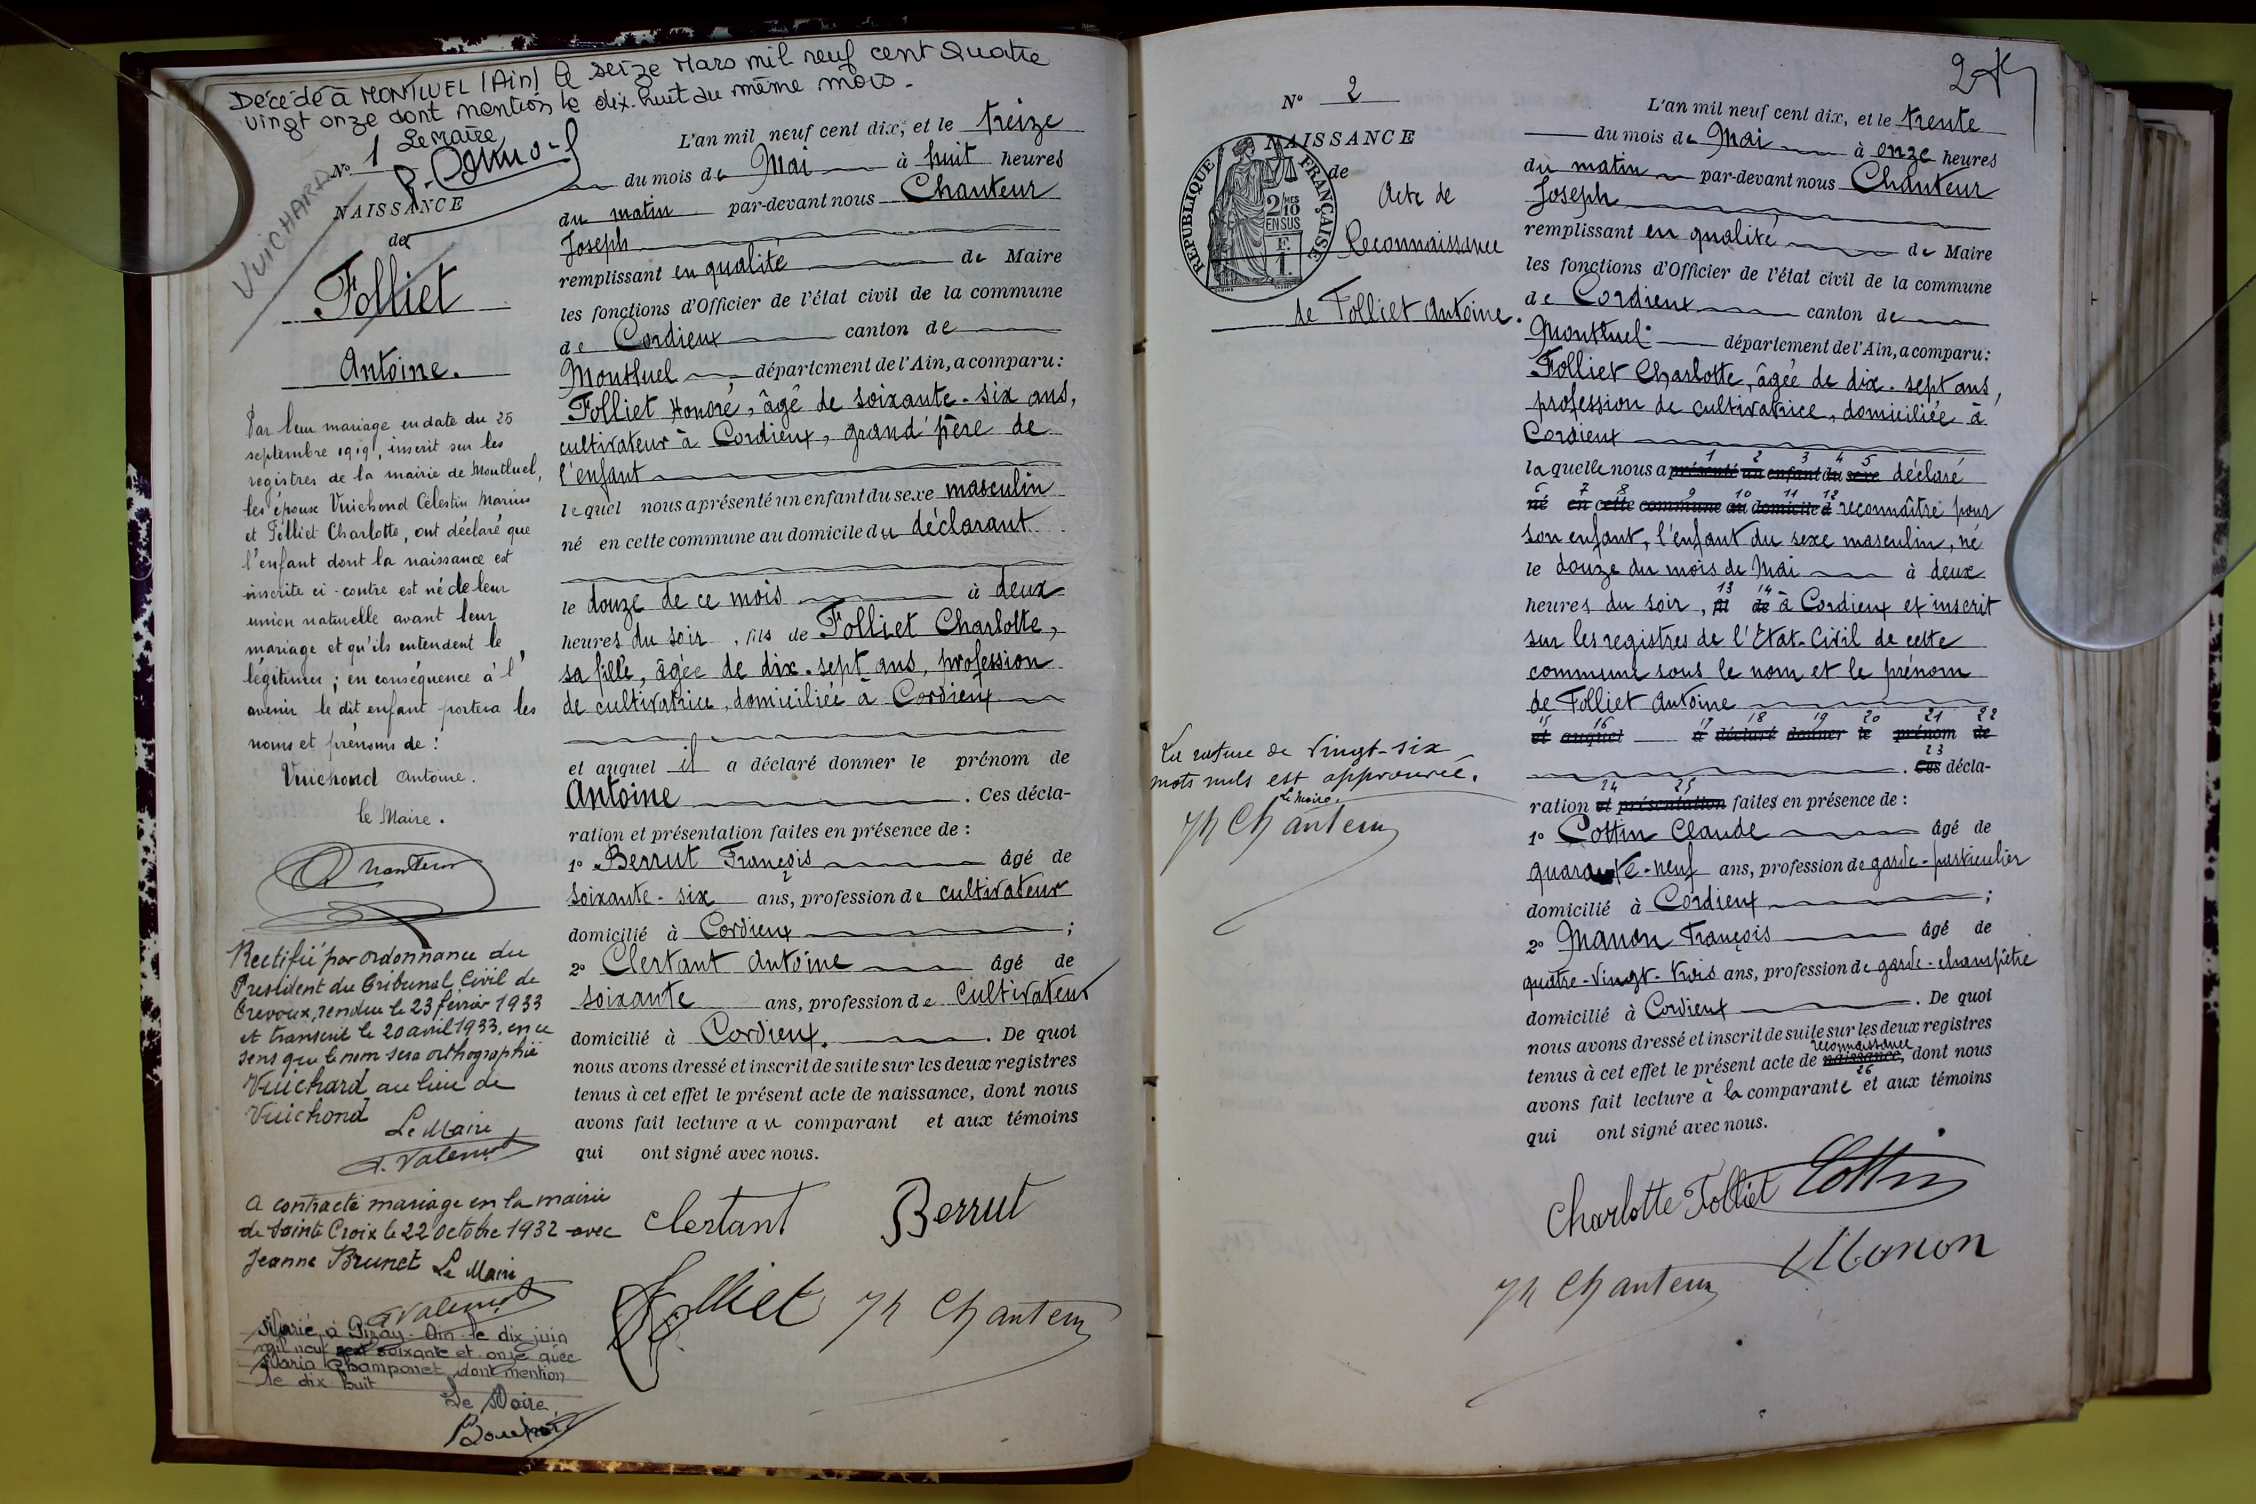 Décédé à MONTLUEL (Ain) le seize Mars mil neuf cent Quatre
vingt onze dont mention le dix-huit du même mois.
Le Maire
N° 1
VUICHARD
NAISSANCE
de
Folliet
Antoine.
Par leur mariage en date du 25
septembre 1919, inscrit sur les
registres de la mairie de Montluel,
les époux Vuichond Célestin Marius
et Folliet Charlotte, ont déclaré que
l'enfant dont la naissance est
inscrite ci-contre est né de leur
union naturelle avant leur
mariage et qu'ils entendent le
légitimer ; en conséquence à l'
avenir le dit enfant portera les
noms et prénoms de :
Vuichond Antoine.
le Maire.
Rectifié par ordonnance du
Président du Tribunal Civil de
Trévoux, rendue le 23 février 1933
et transcrit le 20 avril 1933, en ce
sens que le nom sera orthographié
Vuichard au lieu de
Vuichond
Le Maire
A contracté mariage en la mairie
de Sainte Croix le 22 octobre 1932 avec
Jeanne Brunet Le Maire
Marié à Pizay-Ain le dix juin
mil neuf cent soixante et onze avec
Maria Champonet dont mention
le dix huit
Le Maire
L'an mil neuf cent dix, et le treize
du mois de Mai à huit heures
du matin par-devant nous Chanteur
Joseph
remplissant en qualité de Maire
les fonctions d'Officier de l'état civil de la commune
de Cordieux canton de
Montluel département de l'Ain, a comparu :
Folliet Honoré, âgé de soixante-six ans,
cultivateur à Cordieux, grand'père de
l'enfant
lequel nous a présenté un enfant du sexe masculin
né en cette commune au domicile du déclarant
le douze de ce mois à deux
heures du soir, fils de Folliet Charlotte,
sa fille, âgée de dix-sept ans, profession
de cultivatrice, domiciliée à Cordieux
et auquel il a déclaré donner le prénom de
Antoine. Ces décla-
ration et présentation faites en présence de :
1° Berrut François âgé de
soixante-six ans, profession de cultivateur
domicilié à Cordieux ;
2° Clertant Antoine âgé de
soixante ans, profession de cultivateur
domicilié à Cordieux. De quoi
nous avons dressé et inscrit de suite sur les deux registres
tenus à cet effet le présent acte de naissance, dont nous
avons fait lecture au comparant et aux témoins
qui ont signé avec nous.
Clertant Berrut
Folliet Jh Chanteur
2
N° 2
NAISSANCE
de
Acte de
Reconnaissance
de Folliet Antoine.
RÉPUBLIQUE FRANÇAISE
2/10 MES
EN SUS
F.
1.
La rature de vingt-six
mots nuls est approuvée.
Le Maire.
Jh Chanteur
L'an mil neuf cent dix, et le trente
du mois de Mai à onze heures
du matin par-devant nous Chanteur
Joseph
remplissant en qualité de Maire
les fonctions d'Officier de l'état civil de la commune
de Cordieux canton de
Montluel département de l'Ain, a comparu :
Folliet Charlotte, âgée de dix-sept ans,
profession de cultivatrice, domiciliée à
Cordieux
1 2 3 4 5
laquelle nous a présenté un enfant du sexe déclaré
6 7 8 9 10 11 12
né en cette commune au domicile d reconnaître pour
son enfant, l'enfant du sexe masculin, né
le douze du mois de Mai à deux
13 14
heures du soir, fil de à Cordieux et inscrit
sur les registres de l'Etat-Civil de cette
commune sous le nom et le prénom
de Folliet Antoine
15 16 17 18 19 20 21 22
et auquel a déclaré donner le prénom de
23
. Ces décla-
24 25
ration et présentation faites en présence de :
1° Cottin Claude âgé de
quarante-neuf ans, profession de garde-particulier
domicilié à Cordieux ;
2° Manon François âgé de
quatre-vingt-trois ans, profession de garde-champêtre
domicilié à Cordieux. De quoi
nous avons dressé et inscrit de suite sur les deux registres
reconnaissance
tenus à cet effet le présent acte de naissance, dont nous
26
avons fait lecture à la comparante et aux témoins
qui ont signé avec nous.
Charlotte Folliet Cottin
Jh Chanteur Manon